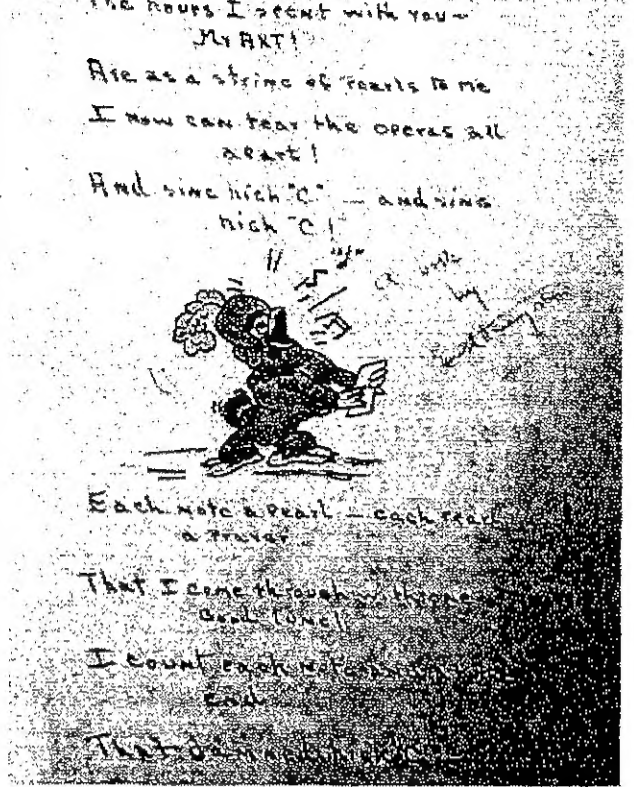 The hours I spent with you —
My ART!
Are as a string of Pearls to me
I now can tear the operas all
apart!
And sing high "C" — and sing
high "C"!
by
Each note a pearl — each pearl
a Prayer
That I come through with one
Good tune!!
I count each note
end
That